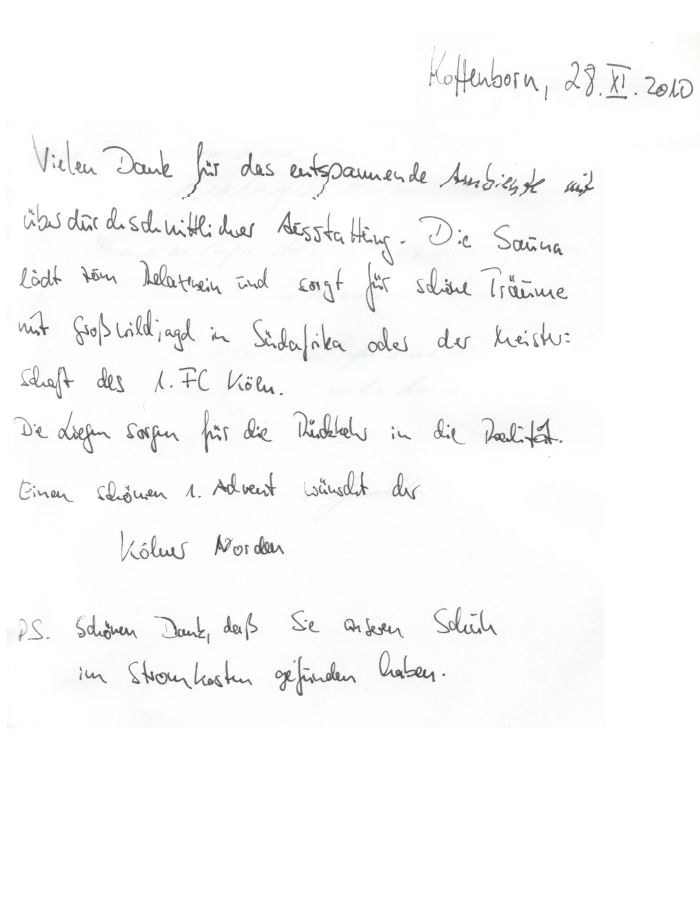 Kottenborn, 28.XI.2010
Vielen Dank für das entspannende Ambiente mit
überdurchschnittlicher Ausstattung. Die Sauna
lädt zum Relaxen ein und sorgt für schöne Träume
mit Großwildjagd in Südafrika oder der Meister=
schaft des 1. FC Köln.
Die Liegen sorgen für die Rückkehr in die Realität.
Einen schönen 1. Advent wünscht der
Kölner Norden
PS. Schönen Dank, daß Sie unseren Schuh
im Stromkasten gefunden haben.